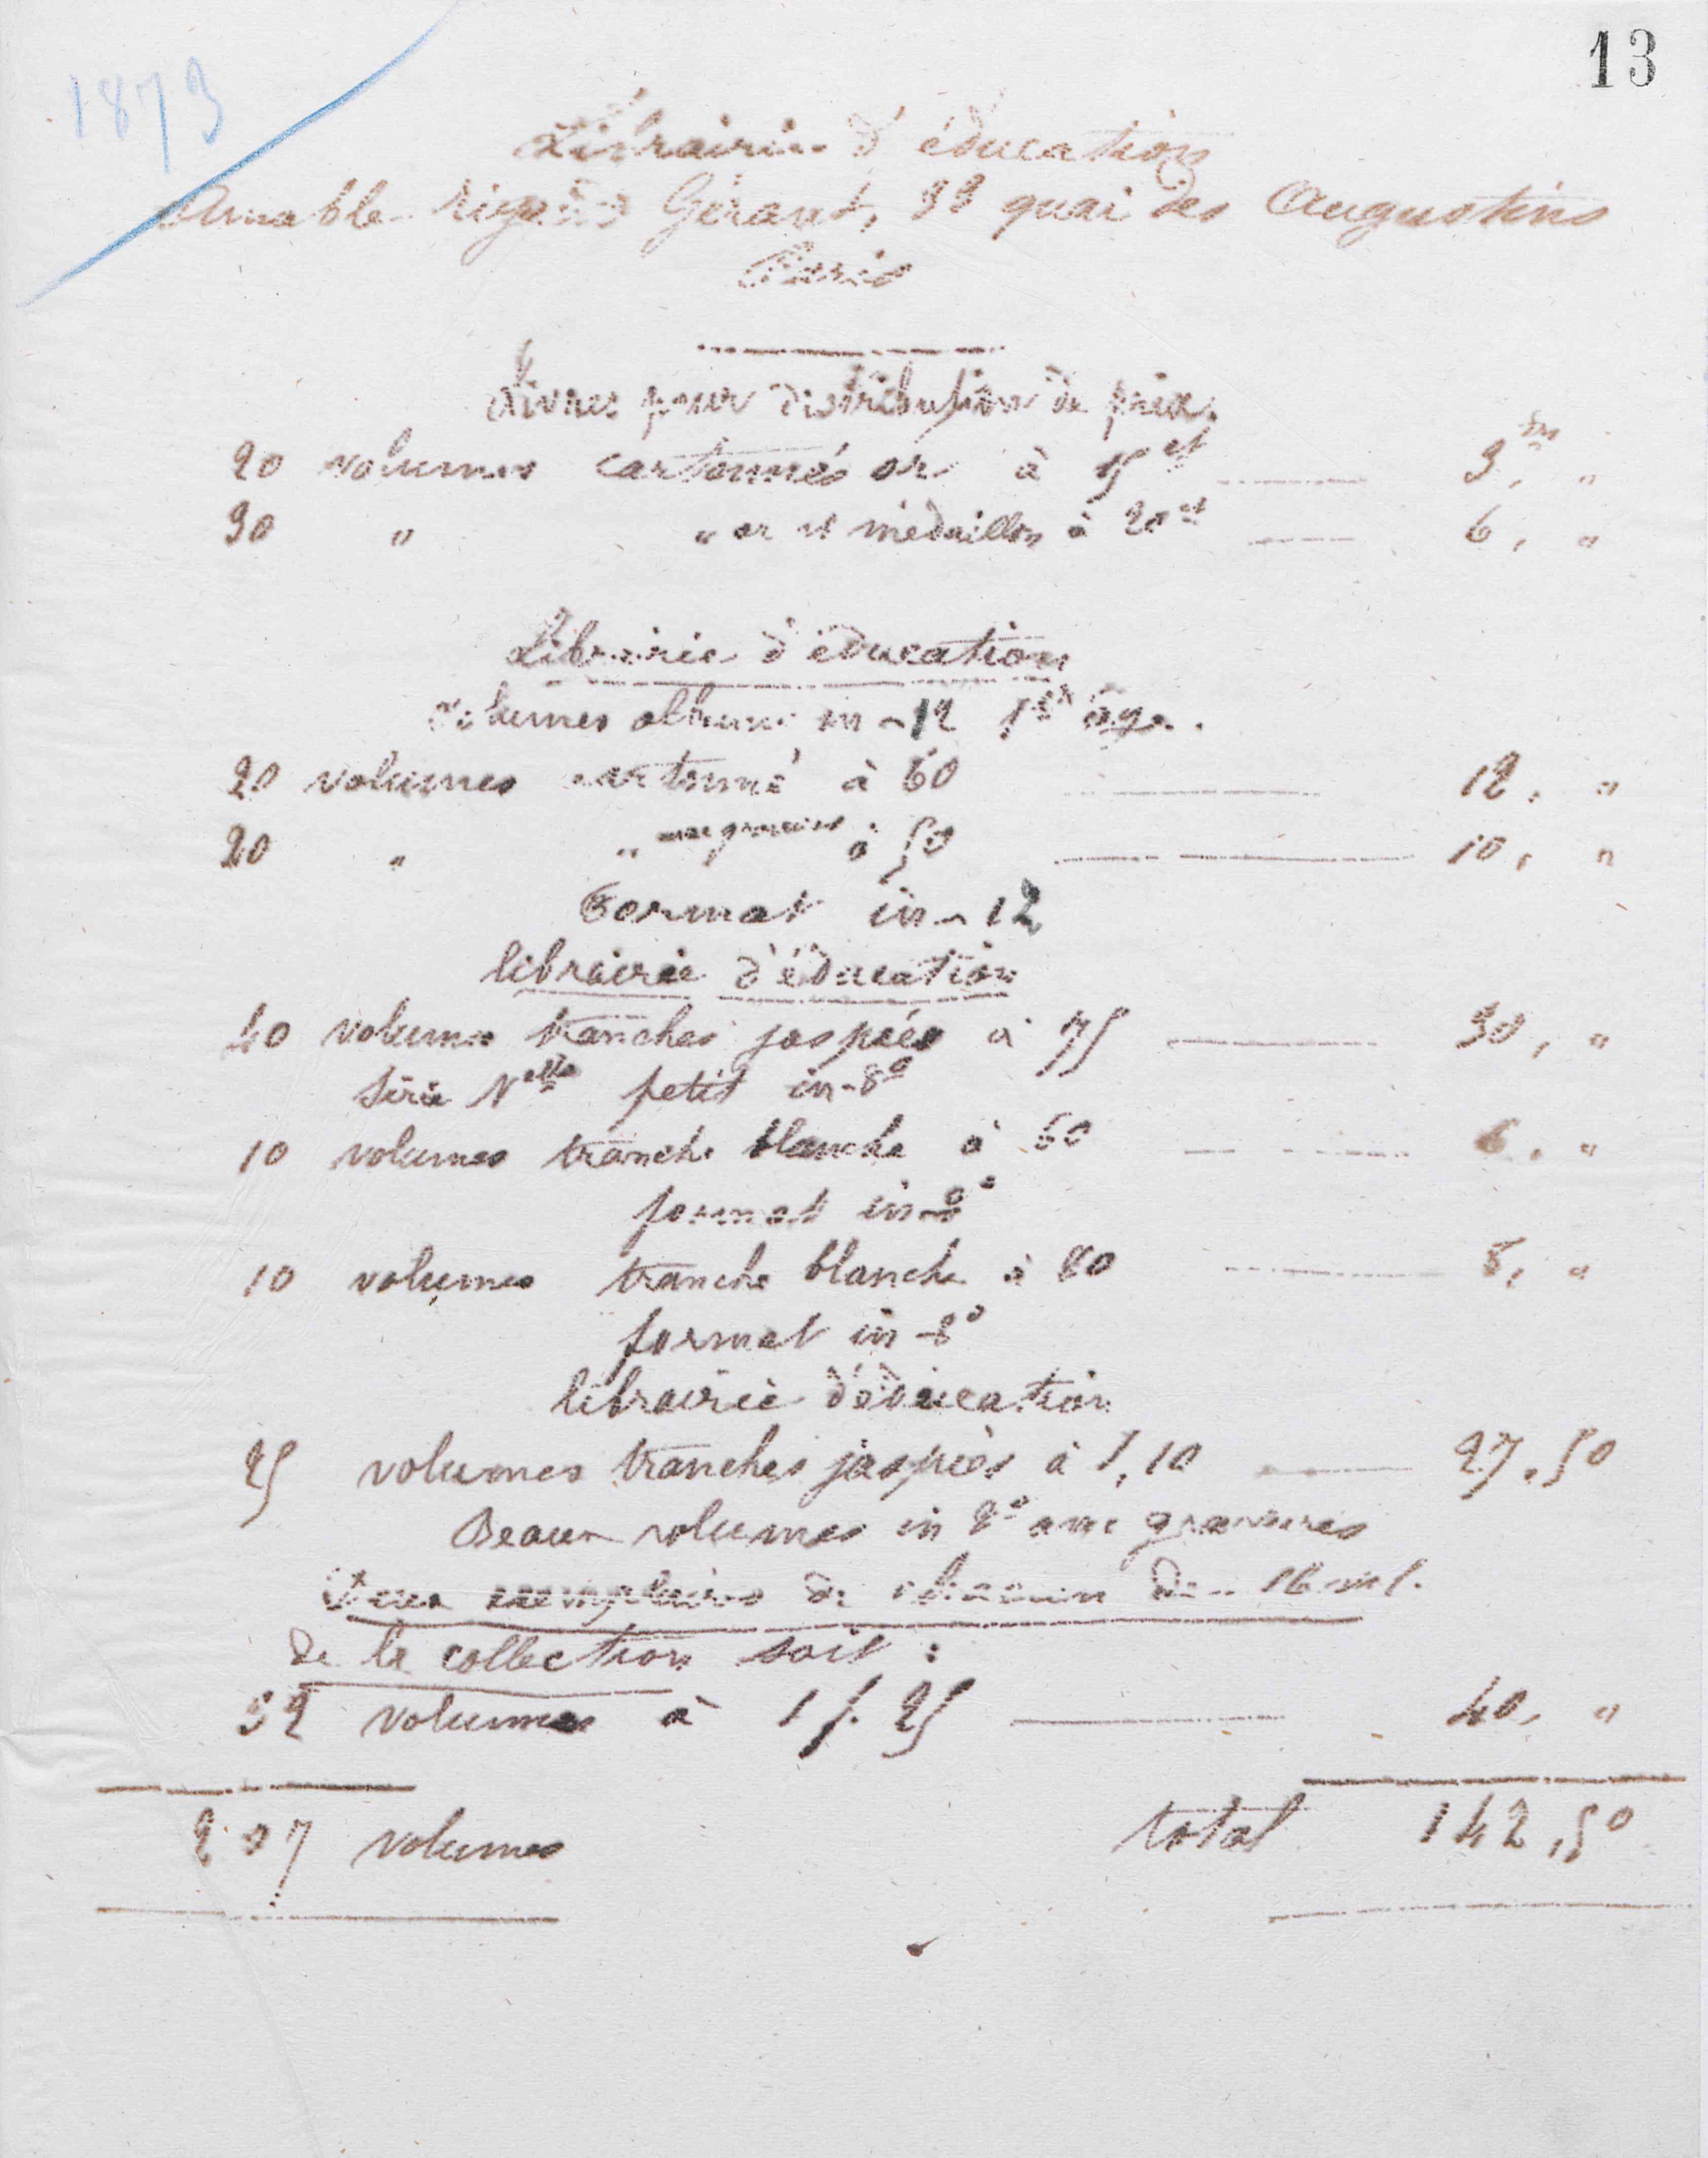 13
1873
Librairie d'éducation
Amable Rigaud Gérant, 33 quai des Augustins
Paris
Livres pour distribution de prix.
20 volumes cartonnés or à 15 ct 3 fr, "
30 " " or et médaillon à 20 ct 6, "
Librairie d'éducation
volumes album in-12 1er âge.
20 volumes cartonné à 60 12, "
20 " " à 50 10, "
Format in-12
librairie d'éducation
40 volumes tranches jaspées à 75 30, "
Série Nelle petit in-8°
10 volumes tranche blanche à 60 6, "
format in-8°
10 volumes tranche blanche à 80 8, "
format in-8°
librairie d'éducation
25 volumes tranches jaspées à 1,10 27,50
Beaux volumes in 8° avec gravures
Deux exemplaires de chacun de 16 vol.
de la collection soit :
32 volumes à 1 f. 25 40, "
207 volumes total 142,50